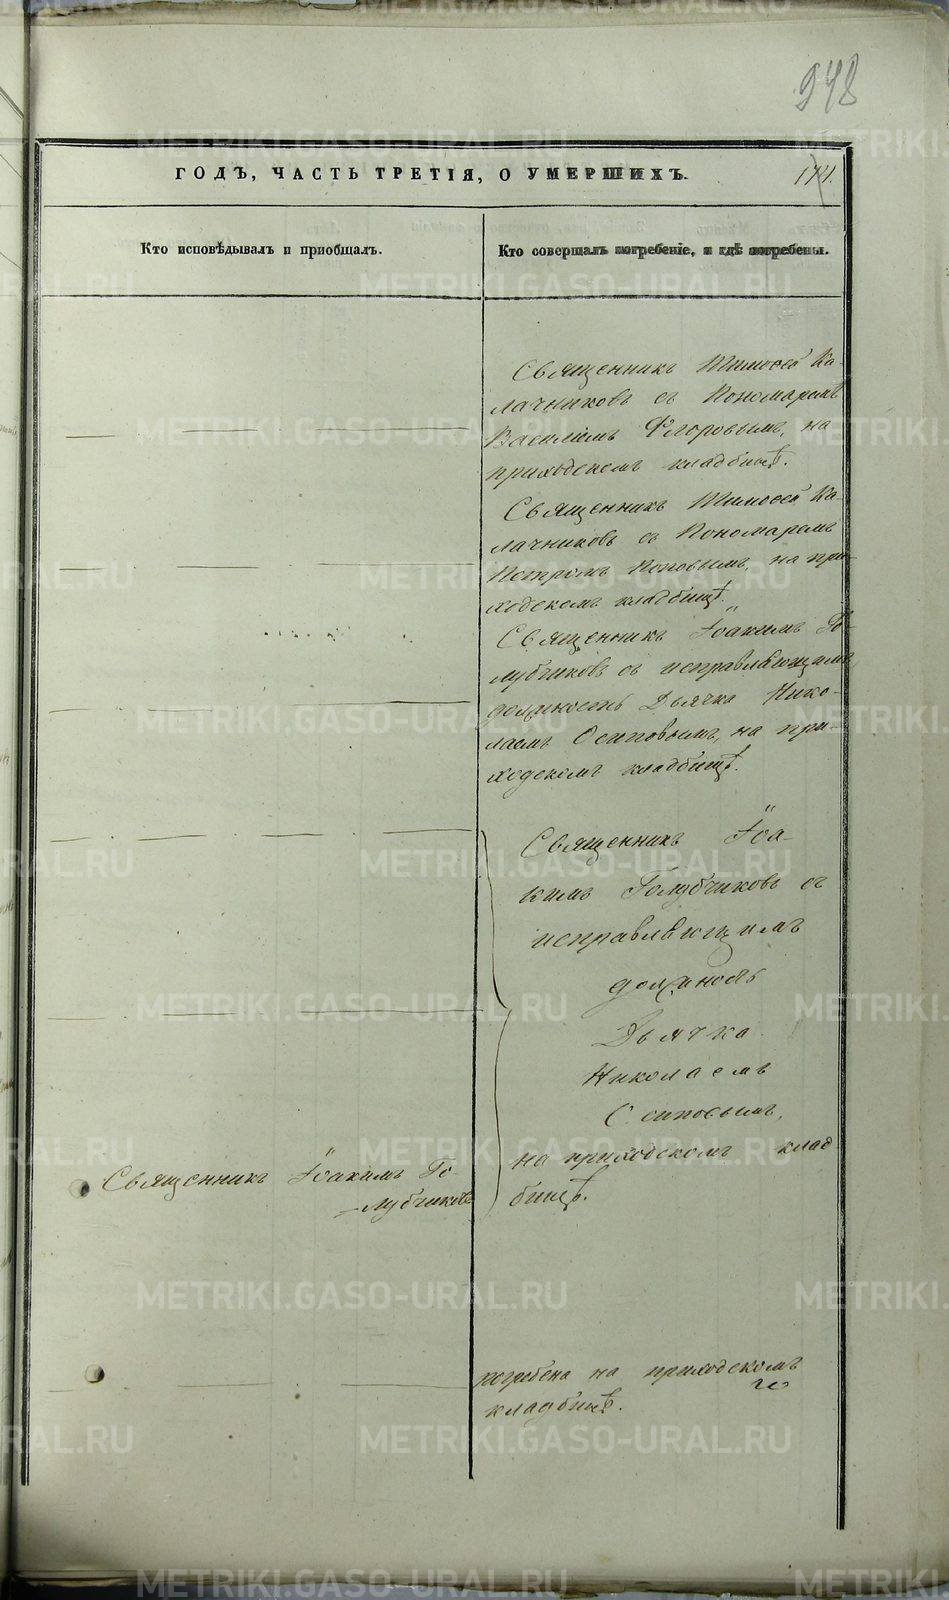 948
ГОДЪ, ЧАСТЬ ТРЕТІЯ, О УМЕРШИХЪ.
174.
Кто исповѣдывалъ и пріобщалъ.
Кто совершалъ погребеніе, и гдѣ погребены.
Священникъ Тимоѳей Ка-
лачниковъ съ Пономаремъ
Василіемъ Флоровымъ, на
приходскомъ кладбищѣ.
Священникъ Тимоѳей Ка-
лачниковъ съ Пономаремъ
Петромъ Поповымъ, на при-
ходскомъ кладбищѣ.
Священникъ Іоакимъ Го-
лубчиковъ съ исправляющимъ
должность Дьячка Нико-
лаемъ Осиповымъ, на при-
ходскомъ кладбищѣ.
Священникъ Іоа-
кимъ Голубчиковъ съ
исправляющимъ
должность
Дьячка
Николаемъ
Осиповымъ,
на приходскомъ клад
бищѣ.
Священникъ Іоакимъ Го-
лубчиковъ
погребена на приходскомъ
кладбищѣ.
METRIKI.GASO-URAL.RU